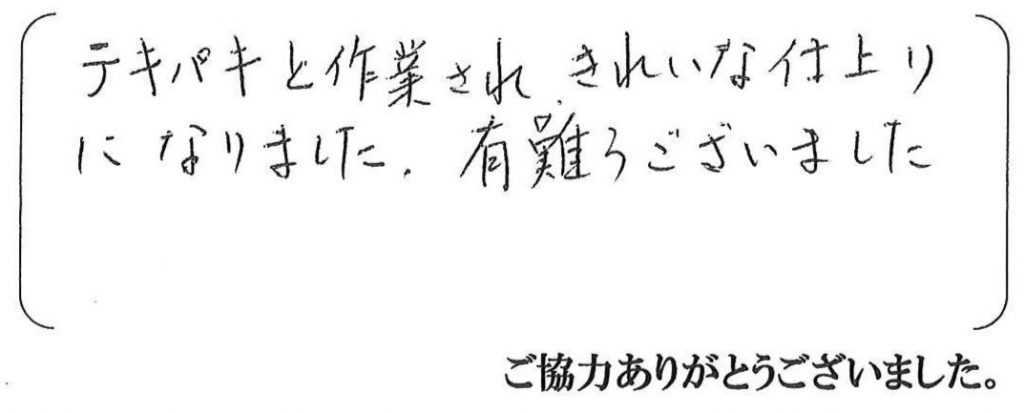 テキパキと作業され、きれいな仕上り
になりました。有難うございました
ご協力ありがとうございました。